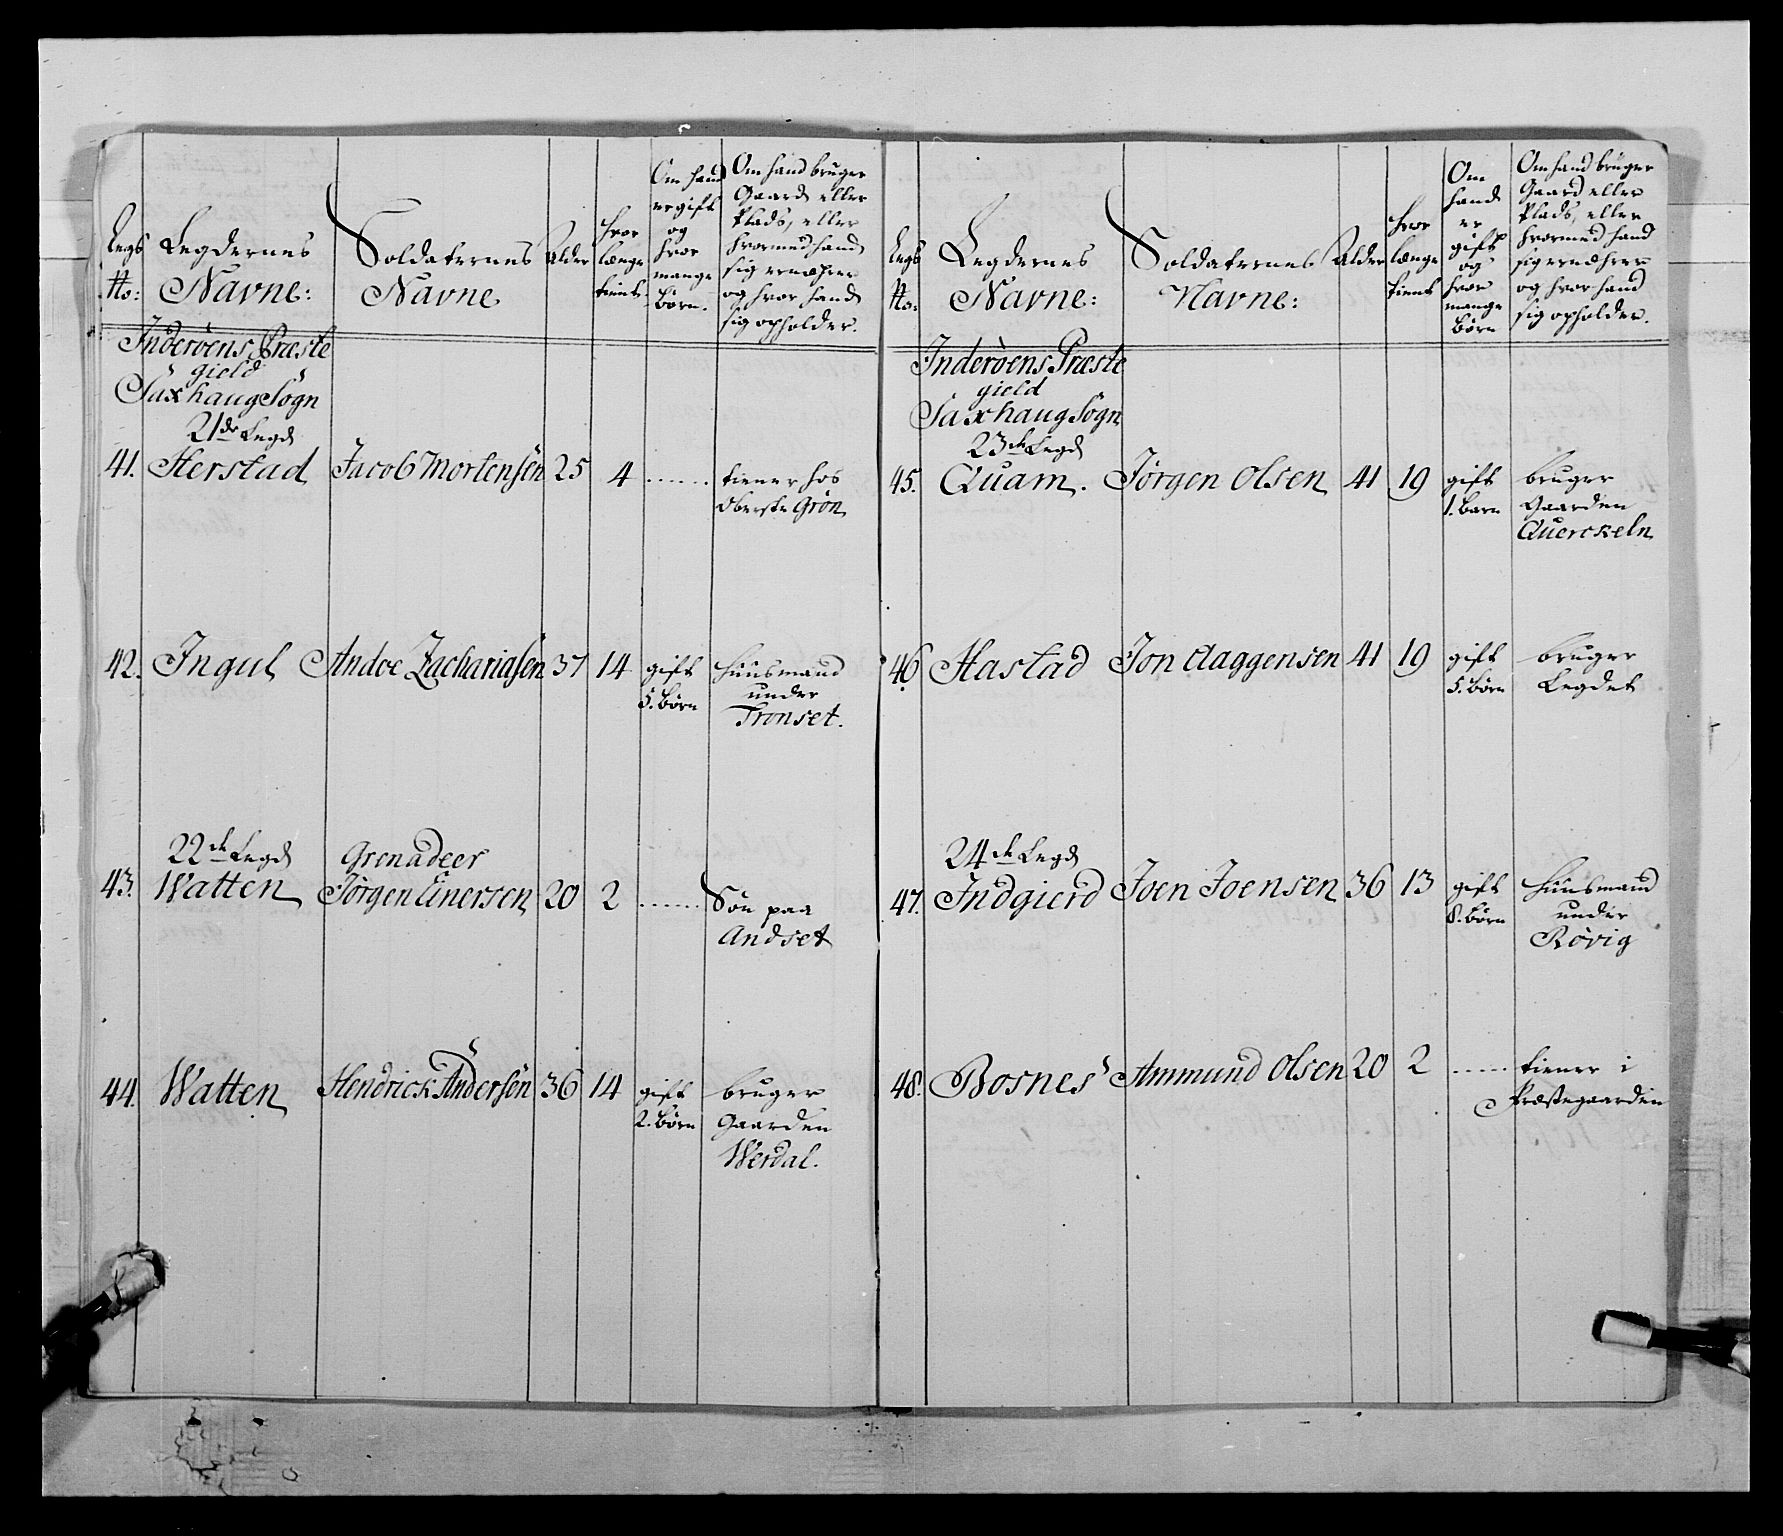 Legs
No:
Legdernes
Navne:
Soldaternes
Navne
Alder
hvor
længe
tient
Om hand
er gift
og
hvor
mange
børn.
Om hand bruger
Gaard eller
Plads, eller
hvormed hand
sig ernæhrer
og hvor hand
sig opholder.
Inderöens Præste
gield
Saxhaug Sogn
21de Legd
41. Herstad Jacob Mortensen 25 4 ...... tiener hos
Oberste Grön
42. Ingul Andoe Zachariasen 37 14 gift Huusmand
5. børn under
Tronset.
22de Legd Grenadeer
43. Watten Jørgen Einersen 20 2 ...... Søn paa
Andset
44. Watten Hendrick Andersen 36 14 gift bruger
2. børn Gaarden
Werdal.
Legs
No:
Legdernes
Navne:
Soldaternes
Navne:
Alder
hvor
længe
tient
Om
hand
er
gift
og
hvor
mange
børn
Om hand bruger
Gaard eller
Plads, eller
hvormed hand
sig ernæhrer
og hvor hand
sig opholder.
Inderöens Præste
gield
Saxhaug Sogn
23de Legd
45. Quam. Jørgen Olsen 41 19 gift bruger
1. barn Gaarden
Querckeln
46. Hastad Jon Aaggensen 41 19 gift bruger
5. børn Legdet
24de Legd
47. Indgierd Joen Joensen 36 13 gift Huusmand
8. børn under
Rövig
48. Bosnes Ammund Olsen 20 2 ...... tiener i
Præstegaarden